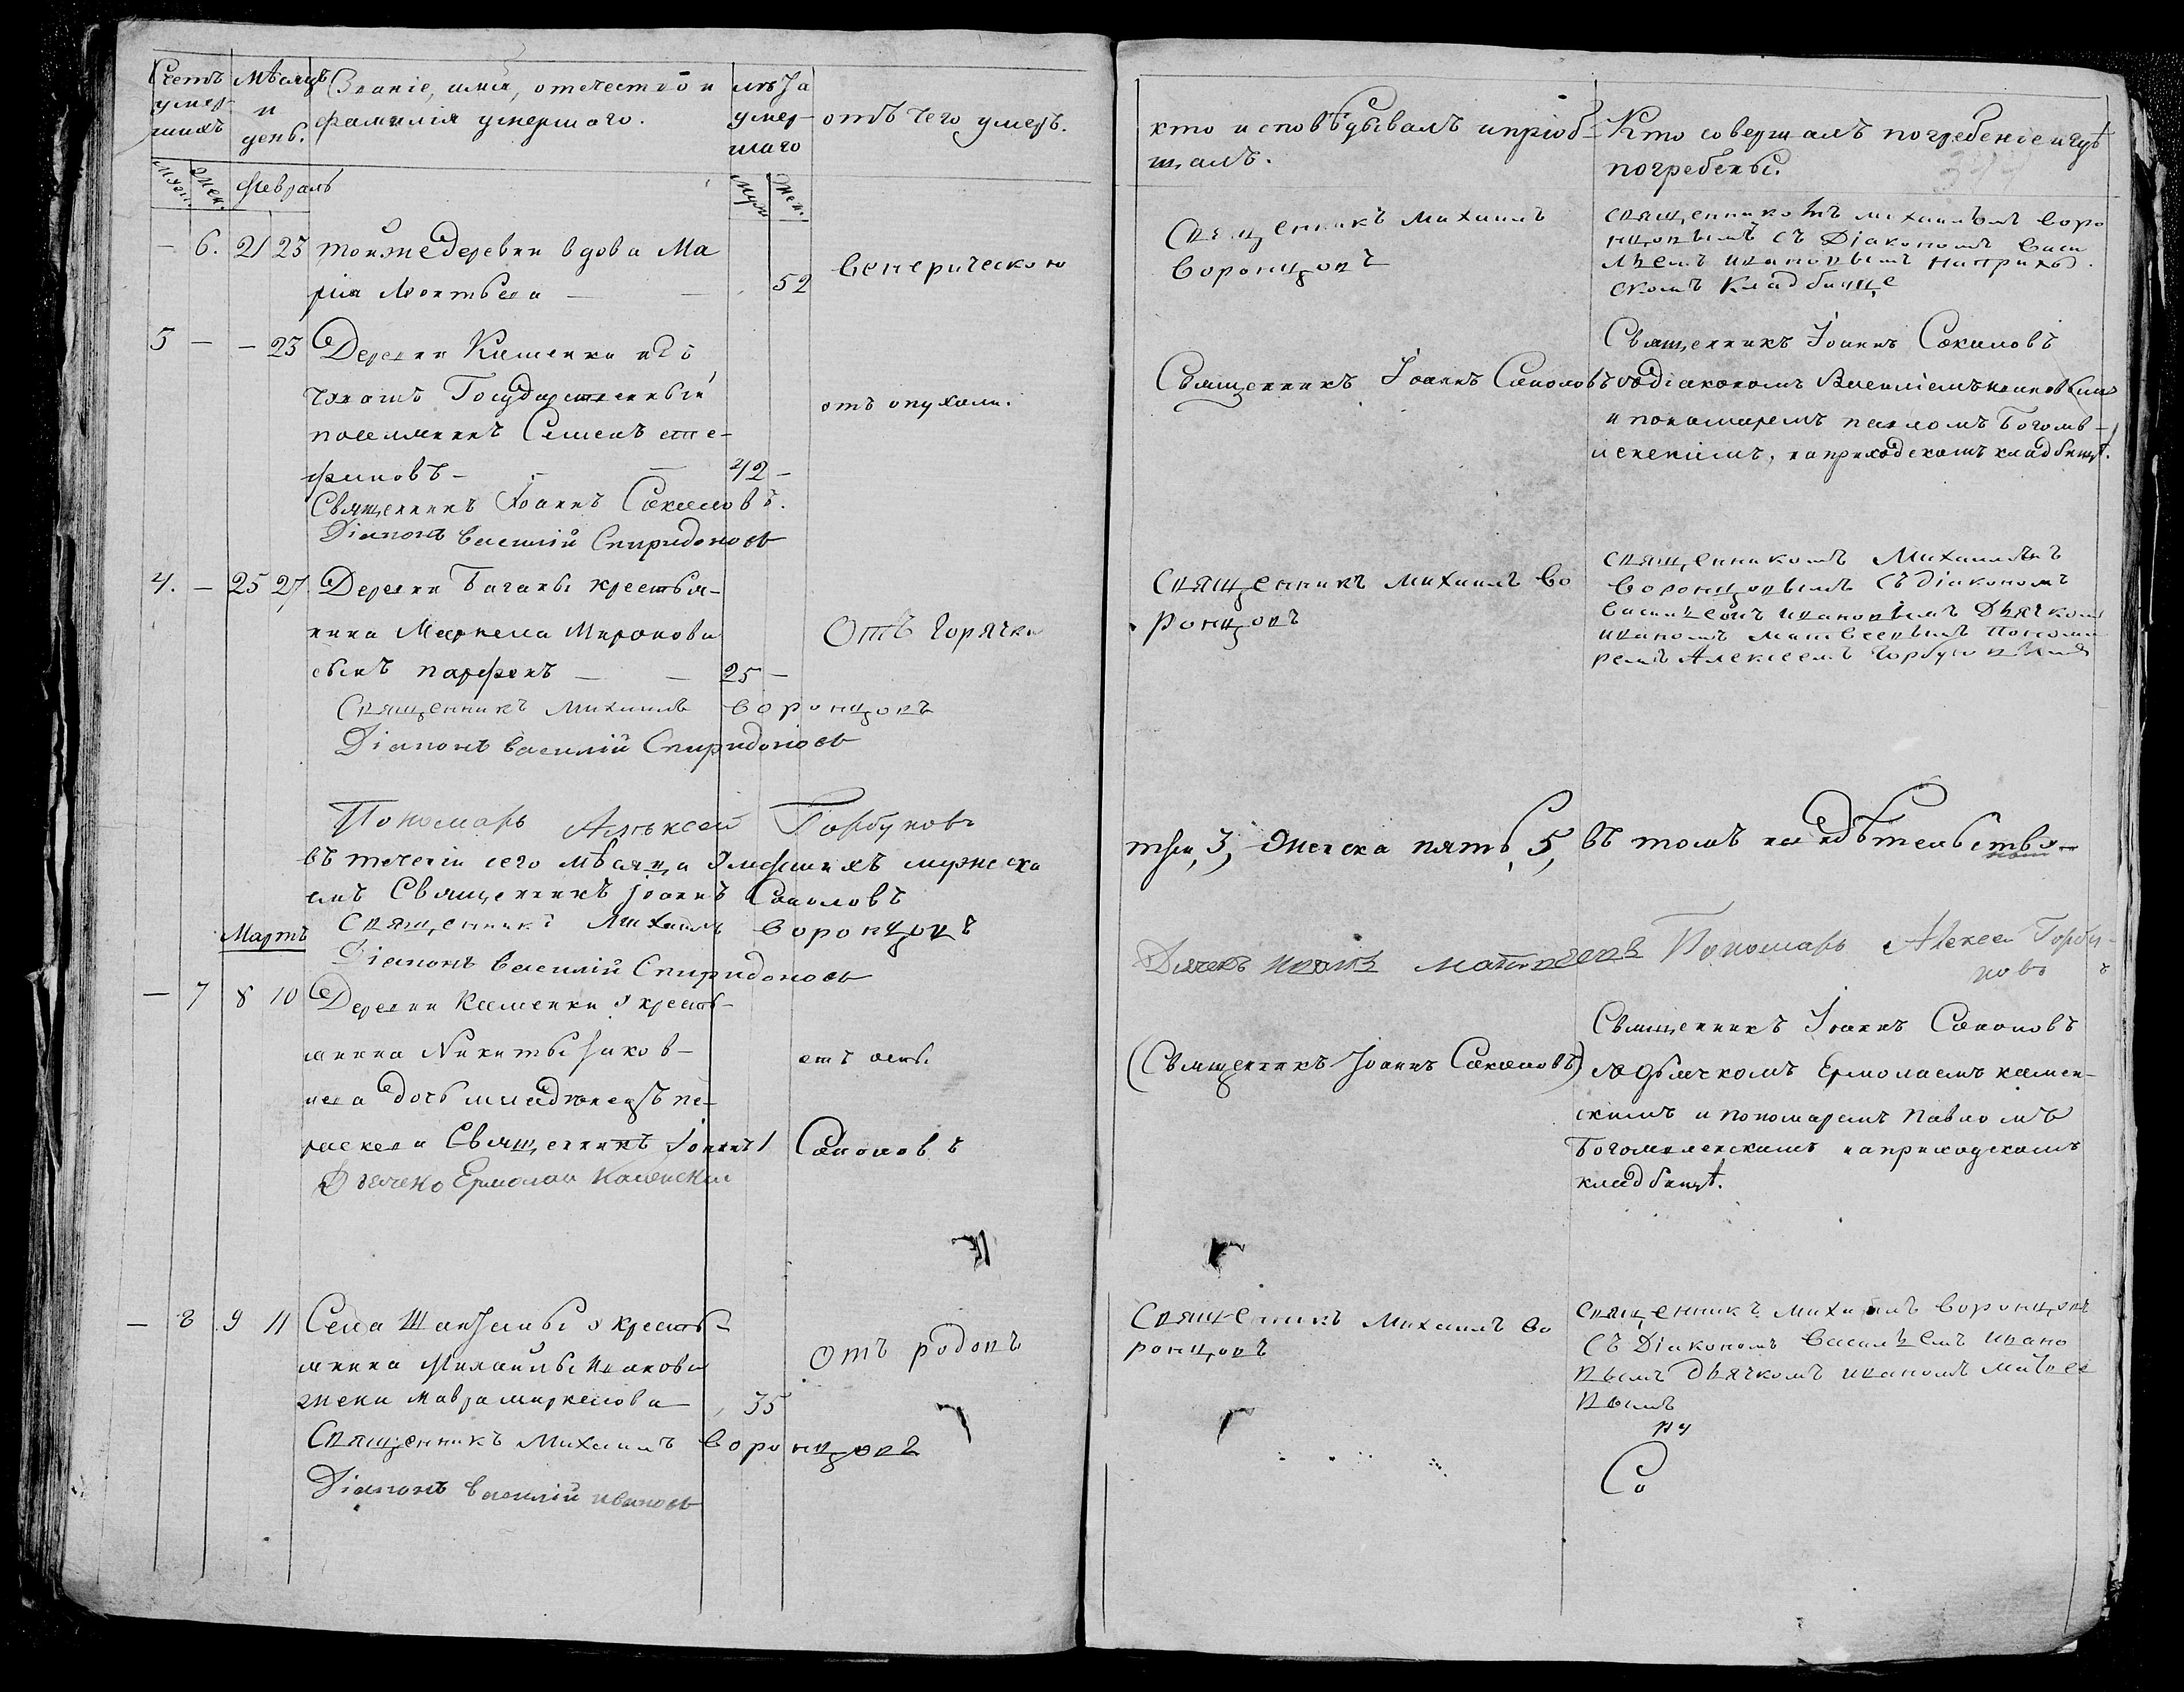 Счетъ умер-шихъ
Мѣсяцъ и день.
Званіе, имя, отечество и
фамилія умершаго.
лѣта умер-шаго
отъ чего умеръ.
кто исповѣдывалъ и пріоб-
щалъ.
Кто совершалъ погребеніе и гдѣ
погребены.
Муж. Жен.
Февраль
Муж. Жен.
— 6. 21 23 тойже деревни вдова Ма
рія Леонтьева — — 52
Венерическою
Священникъ Михаилъ
Воронцовъ
священникомъ михаиломъ Воро
нцовымъ съ Діакономъ Васи
льемъ ивановымъ на приход
скомъ Кладбище
3 — — 23 Деревни Каменки
Государственный
поселянинъ Семенъ сте-
фановъ — — 42 —
отъ опухоли.
Священникъ Іоаннъ Соколовъ.
Діаконъ Василій Спиридоновъ
Священникъ Іоаннъ Соколовъ
Священникъ Іоаннъ Соколовъ
со діакономъ Василіемъ ивановымъ
и пономаремъ павломъ Богомв-
ленскимъ, на приходскомъ кладбищѣ.
4. — 25 27 Деревни Баганы крестья-
нина Маркела Миронова
сынъ парфенъ — — 25 —
Отъ Горячки
Священникъ Михаилъ Воронцовъ
Діаконъ Василій Спиридоновъ
Священникъ михаилъ Во
ронцовъ
священникомъ Михаиломъ
Воронцовымъ съ діакономъ
Васильемъ ивановымъ Дьячкомъ
иваномъ матвеевымъ понома
ремъ Алексеемъ Горбуновымъ
Пономарь Алѣксей Горбуновъ
въ теченіи сего мѣсяца умершихъ мужеска
три, 3, Женска пять, 5, въ томъ свидѣтельству-
емъ Священникъ Іоаннъ Соколовъ
Священникъ Михаилъ Воронцовъ
Діаконъ Василій Спиридоновъ
Дьячекъ иванъ матвеевъ Пономарь Алексей Горбу-
новъ
Мартъ
— 7 8 10 Деревни Каменки крестья-
нина Никиты
дочь младенецъ па-
раскева Священникъ Іоаннъ 1 Соколовъ
Дьячекъ Ермолай Каменский
отъ оспы.
(Священникъ Іоаннъ Соколовъ)
Священникъ Іоаннъ Соколовъ
со дьячкомъ Ермолаемъ камен-
скимъ и пономаремъ павломъ
Богомвленскимъ на приходскомъ
кладбищѣ.
— 8 9 11 Села крестья-
нина Михайлы Иванова
жена мавра маркелова — 35
Отъ родовъ
Священникъ Михаилъ Воронцовъ
Діаконъ Василій ивановъ
Священникъ Михаилъ Во
ронцовъ
священникъ михаилъ Воронцовъ
съ Діакономъ Васильемъ ивано
вымъ дьячкомъ иваномъ матвее
вымъ
Со